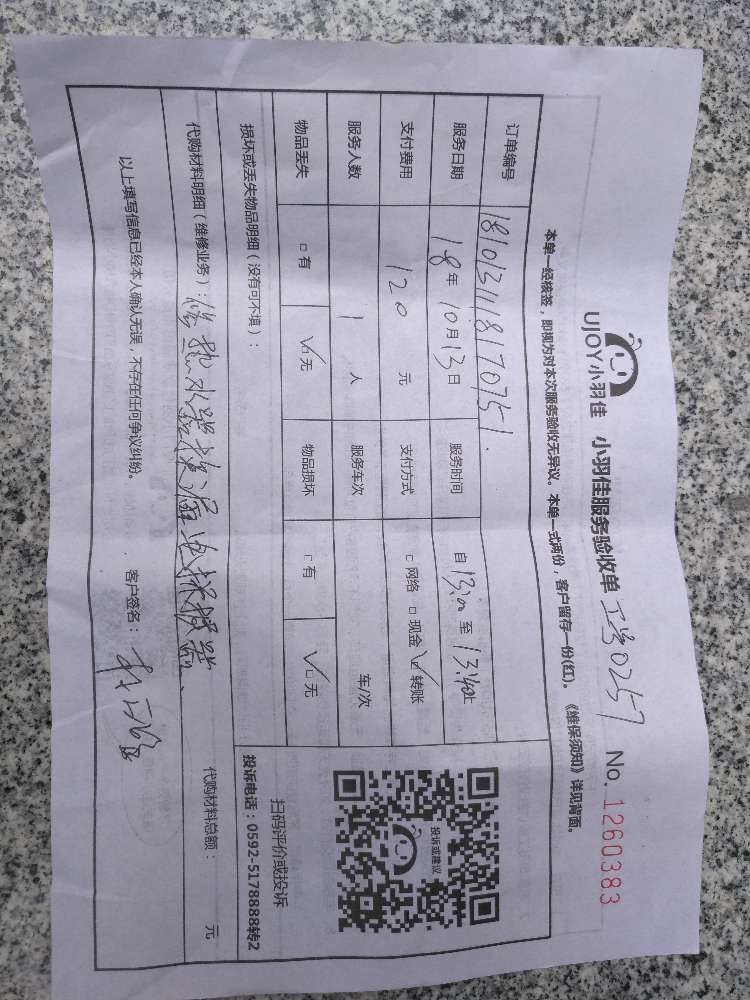 UJOY小羽佳 小羽佳服务验收单 工号0257 No. 1260383
本单一经核签，即视为对本次服务验收无异议。本单一式两份，客户留存一份(红)。《维保须知》详见背面。
订单编号 181013111817075 1.
服务日期 18年10月13日 服务时间 自13:00至13:40止
支付费用 120元 支付方式 □网络 □现金 ☑转账
服务人数 1人 服务车次 车/次
物品丢失 □有 ☑无 物品损坏 □有 ☑无
损坏或丢失物品明细（没有可不填）：
代购材料明细（维修业务）：修热水器 代购材料总额： 元
以上填写信息已经本人确认无误，不存在任何争议纠纷。 客户签名：
投诉或建议
扫码评价或投诉
投诉电话：0592-5178888转2